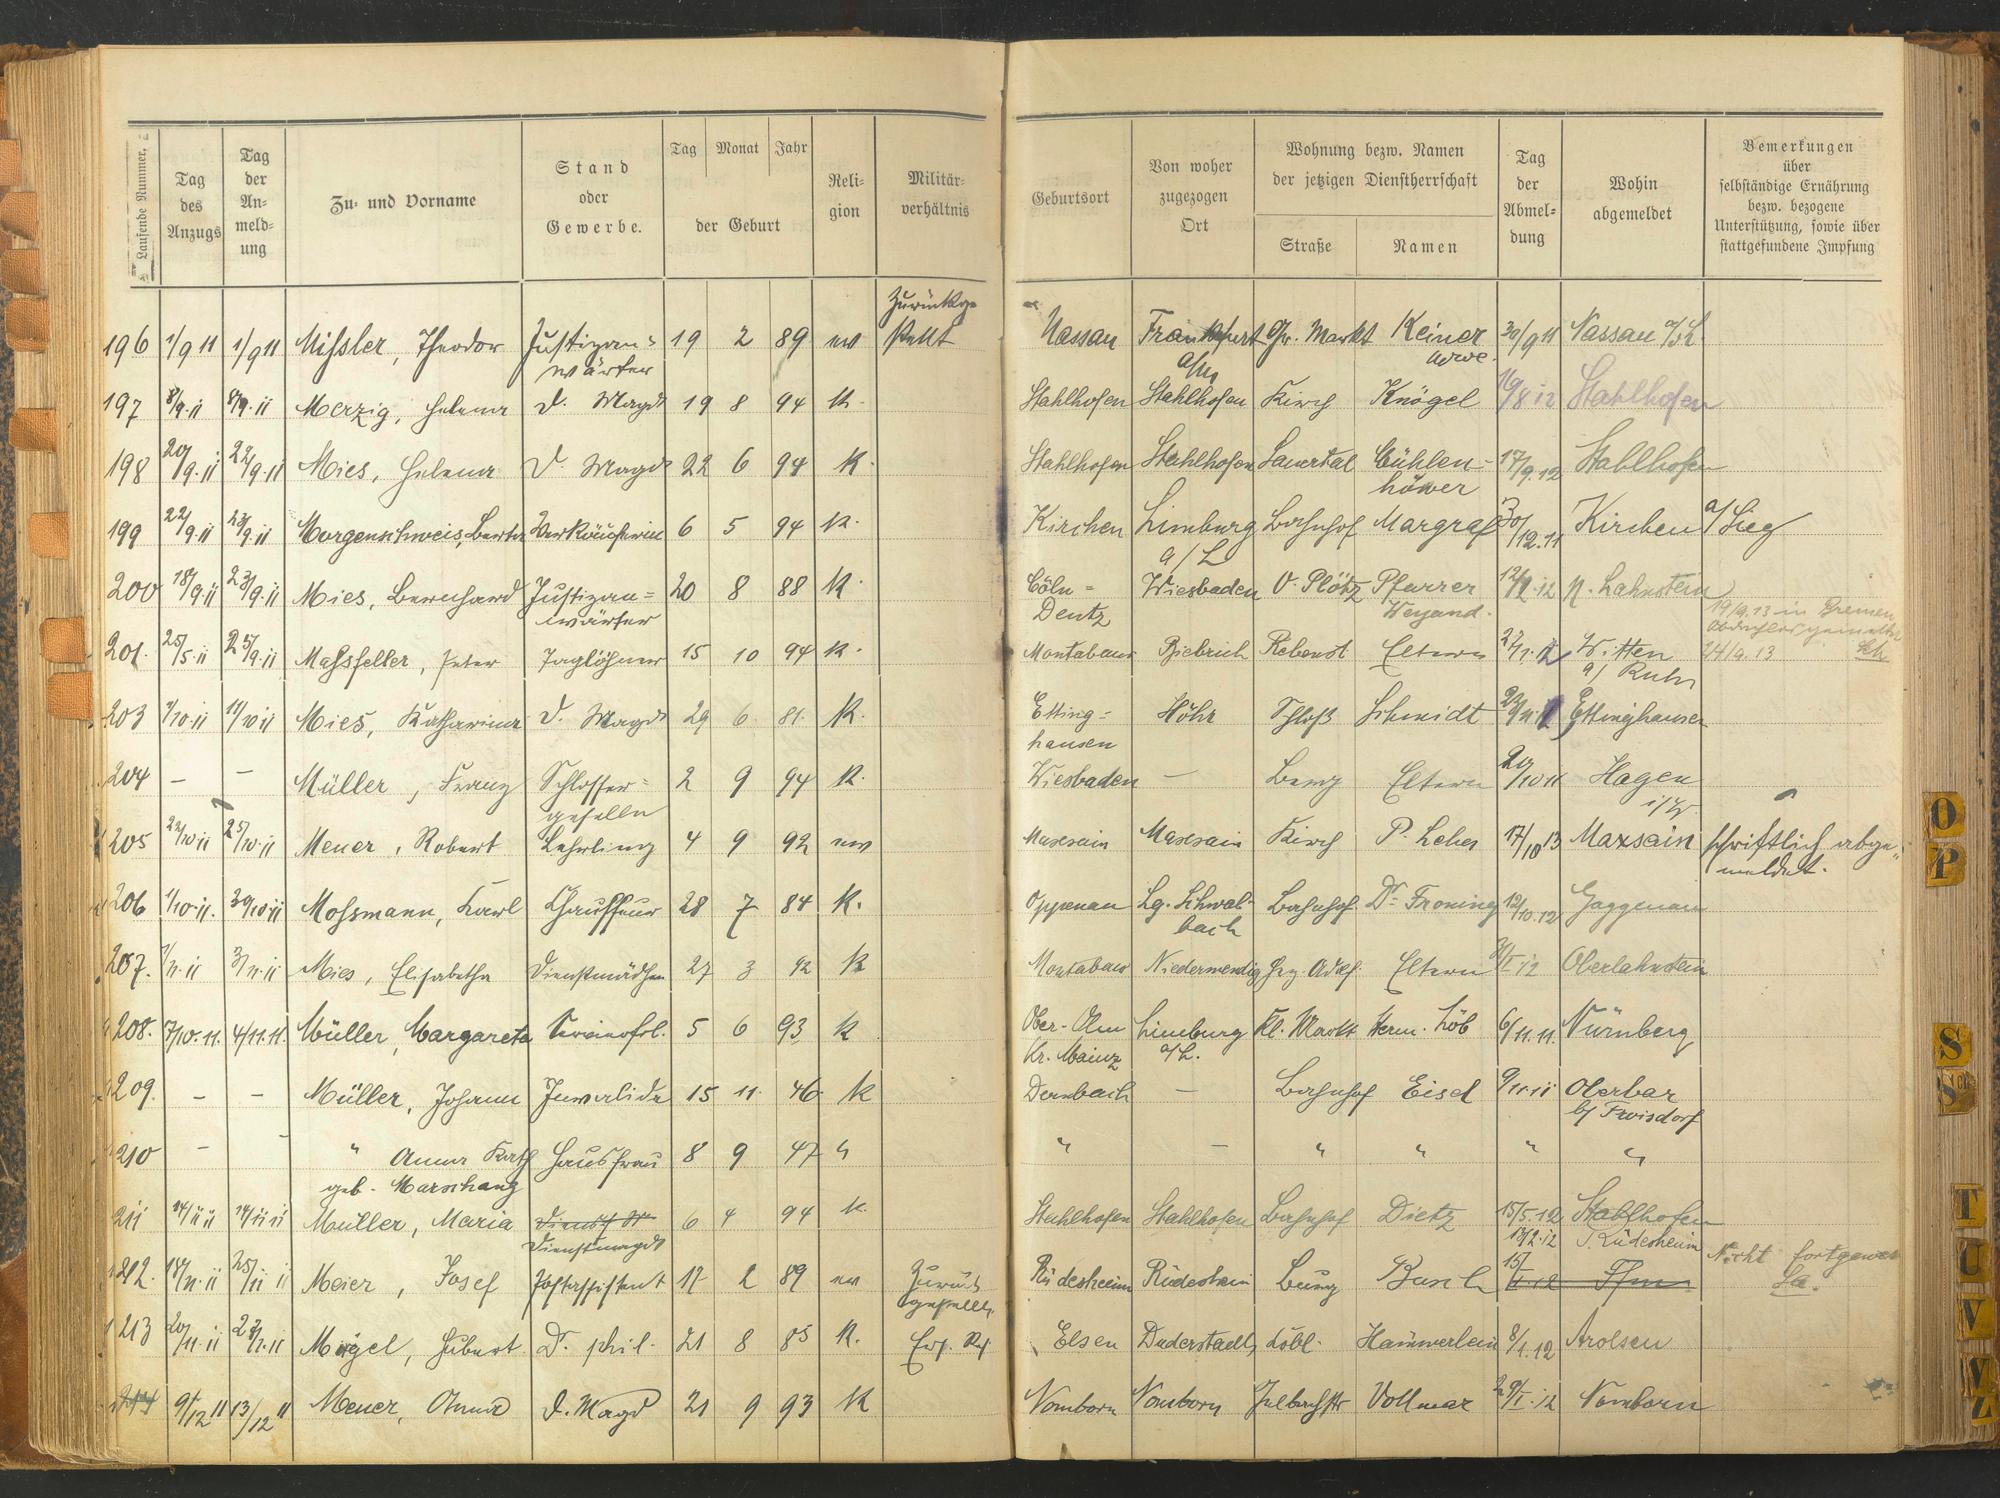 Laufende Nummer.
Tag des Anzugs
Tag der An-meld-ung
Zu- und Vorname
Stand oder Gewerbe.
Tag Monat Jahr
der Geburt
Reli-gion
Militär-verhältnis
Geburtsort
Von woher zugezogen Ort
Wohnung bezw. Namen der jetzigen Dienstherrschaft
Straße Namen
Tag der Abmel-dung
Wohin abgemeldet
Bemerkungen über selbständige Ernährung bezw. bezogene Unterstützung, sowie über stattgefundene Impfung
196 1/9 11 1/9 11 Missler, Theodor Justizan-wärter 19 2 89 ev Zurückge-stellt Nassau Frankfurt a/M Gr. Markt Keiner 30/9 11 Nassau a/L.
197 8/9.11 8/9.11 Merzig, Helena D. Magd 19 8 94 K. Stahlhofen Stahlhofen Kirch Knögel 16/8 12 Stahlhofen
198 20/9.11 22/9.11 Mies, Helena D. Magd 22 6 94 K. Stahlhofen Stahlhofen Sauertal Bühlen-höwer 17/9.12 Stahlhofen
199 22/9.11 23/9.11 Morgenschweis, Berta Verkäuferin 6 5 94 K. Kirchen Limburg a/L Bahnhof Margraf 30/12.11 Kirchen a/Sieg
200 18/9.11 23/9.11 Mies, Bernhard Justizan=wärter 20 8 88 K. Cöln=Deutz Wiesbaden V. Plötz Pfarrer Weyand. N. Lahnstein
201. 25/5.11 25/9.11 Massfeller, Peter Taglöhner 15 10 94 K. Montabaur Biebrich Rebenst Eltern Witten a/ Ruhr 24/9.13
203 11/10 11 Mies, Katharina D. Magd 29 6 81. K. Etting=hausen Höhr Schloß Schmidt Ettinghausen
204 – – Müller, Franz Schlosser=geselle 2 9 94 K. Wiesbaden – Berg Eltern 20/10 11 Hagen i/W.
205 22/10 11 25/10.11 Meuer, Robert Lehrling 4 9 92 ev Maxsain Maxsain Kirch P. Leher 17/10 13 Maxsain schriftlich abge-meldet.
206 1/10.11. 30/10 11 Mossmann, Karl Chauffeur 28 7 84 K. Oppenau Lg. Schwal-bach Bahnhof Dr. Froning 12/10.12 Gaggenau
207. 3/11.11 Mies, Elisabetha Dienstmädchen 27 3 92 K Montabaur Niedermendig Hrz. Adolf. Eltern Oberlahnstein
208. 7/10.11. 4/11.11. Müller, Margareta 5 6 93 K Ober-Olm Kr. Mainz Limburg a/L. Kl. Markt Herm. Löb 6/11.11. Nürnberg
209. – – Müller, Johann Invalide 15 11. 46. K Dernbach – Bahnhof Eisel 9/11.11 Oberbar
210 – – " Anna Kath geb. Marschang Hausfrau 8 9 47 " " – " " " "
211 14/11 11 14/11 11 Müller, Maria Dienstmagd 6 4 94 K. Stahlhofen Stahlhofen Bahnhof Dietz 15/5.12 Stahlhofen
212. 18/11.11 25/11 11 Meier, Josef Postassistent 17 2 89 ev Zurück gestellt. Rüdesheim Rüdesheim Burg Busch 13/2.12 Rüdesheim Nicht
213 20/11.11 Mügel, Hubert Dr. phil. 21 8 85 K. Ers. Res Elsen Duderstadt, Löbl. Hammerlein 8/1.12 Arolsen
214 9/12 11 13/12 11 Meuer, Anna D. Magd 21 9 93 K Nomborn Nomborn Vollmar 29/I.12 Nomborn
O
P
S
Sch
T
U
V
Z